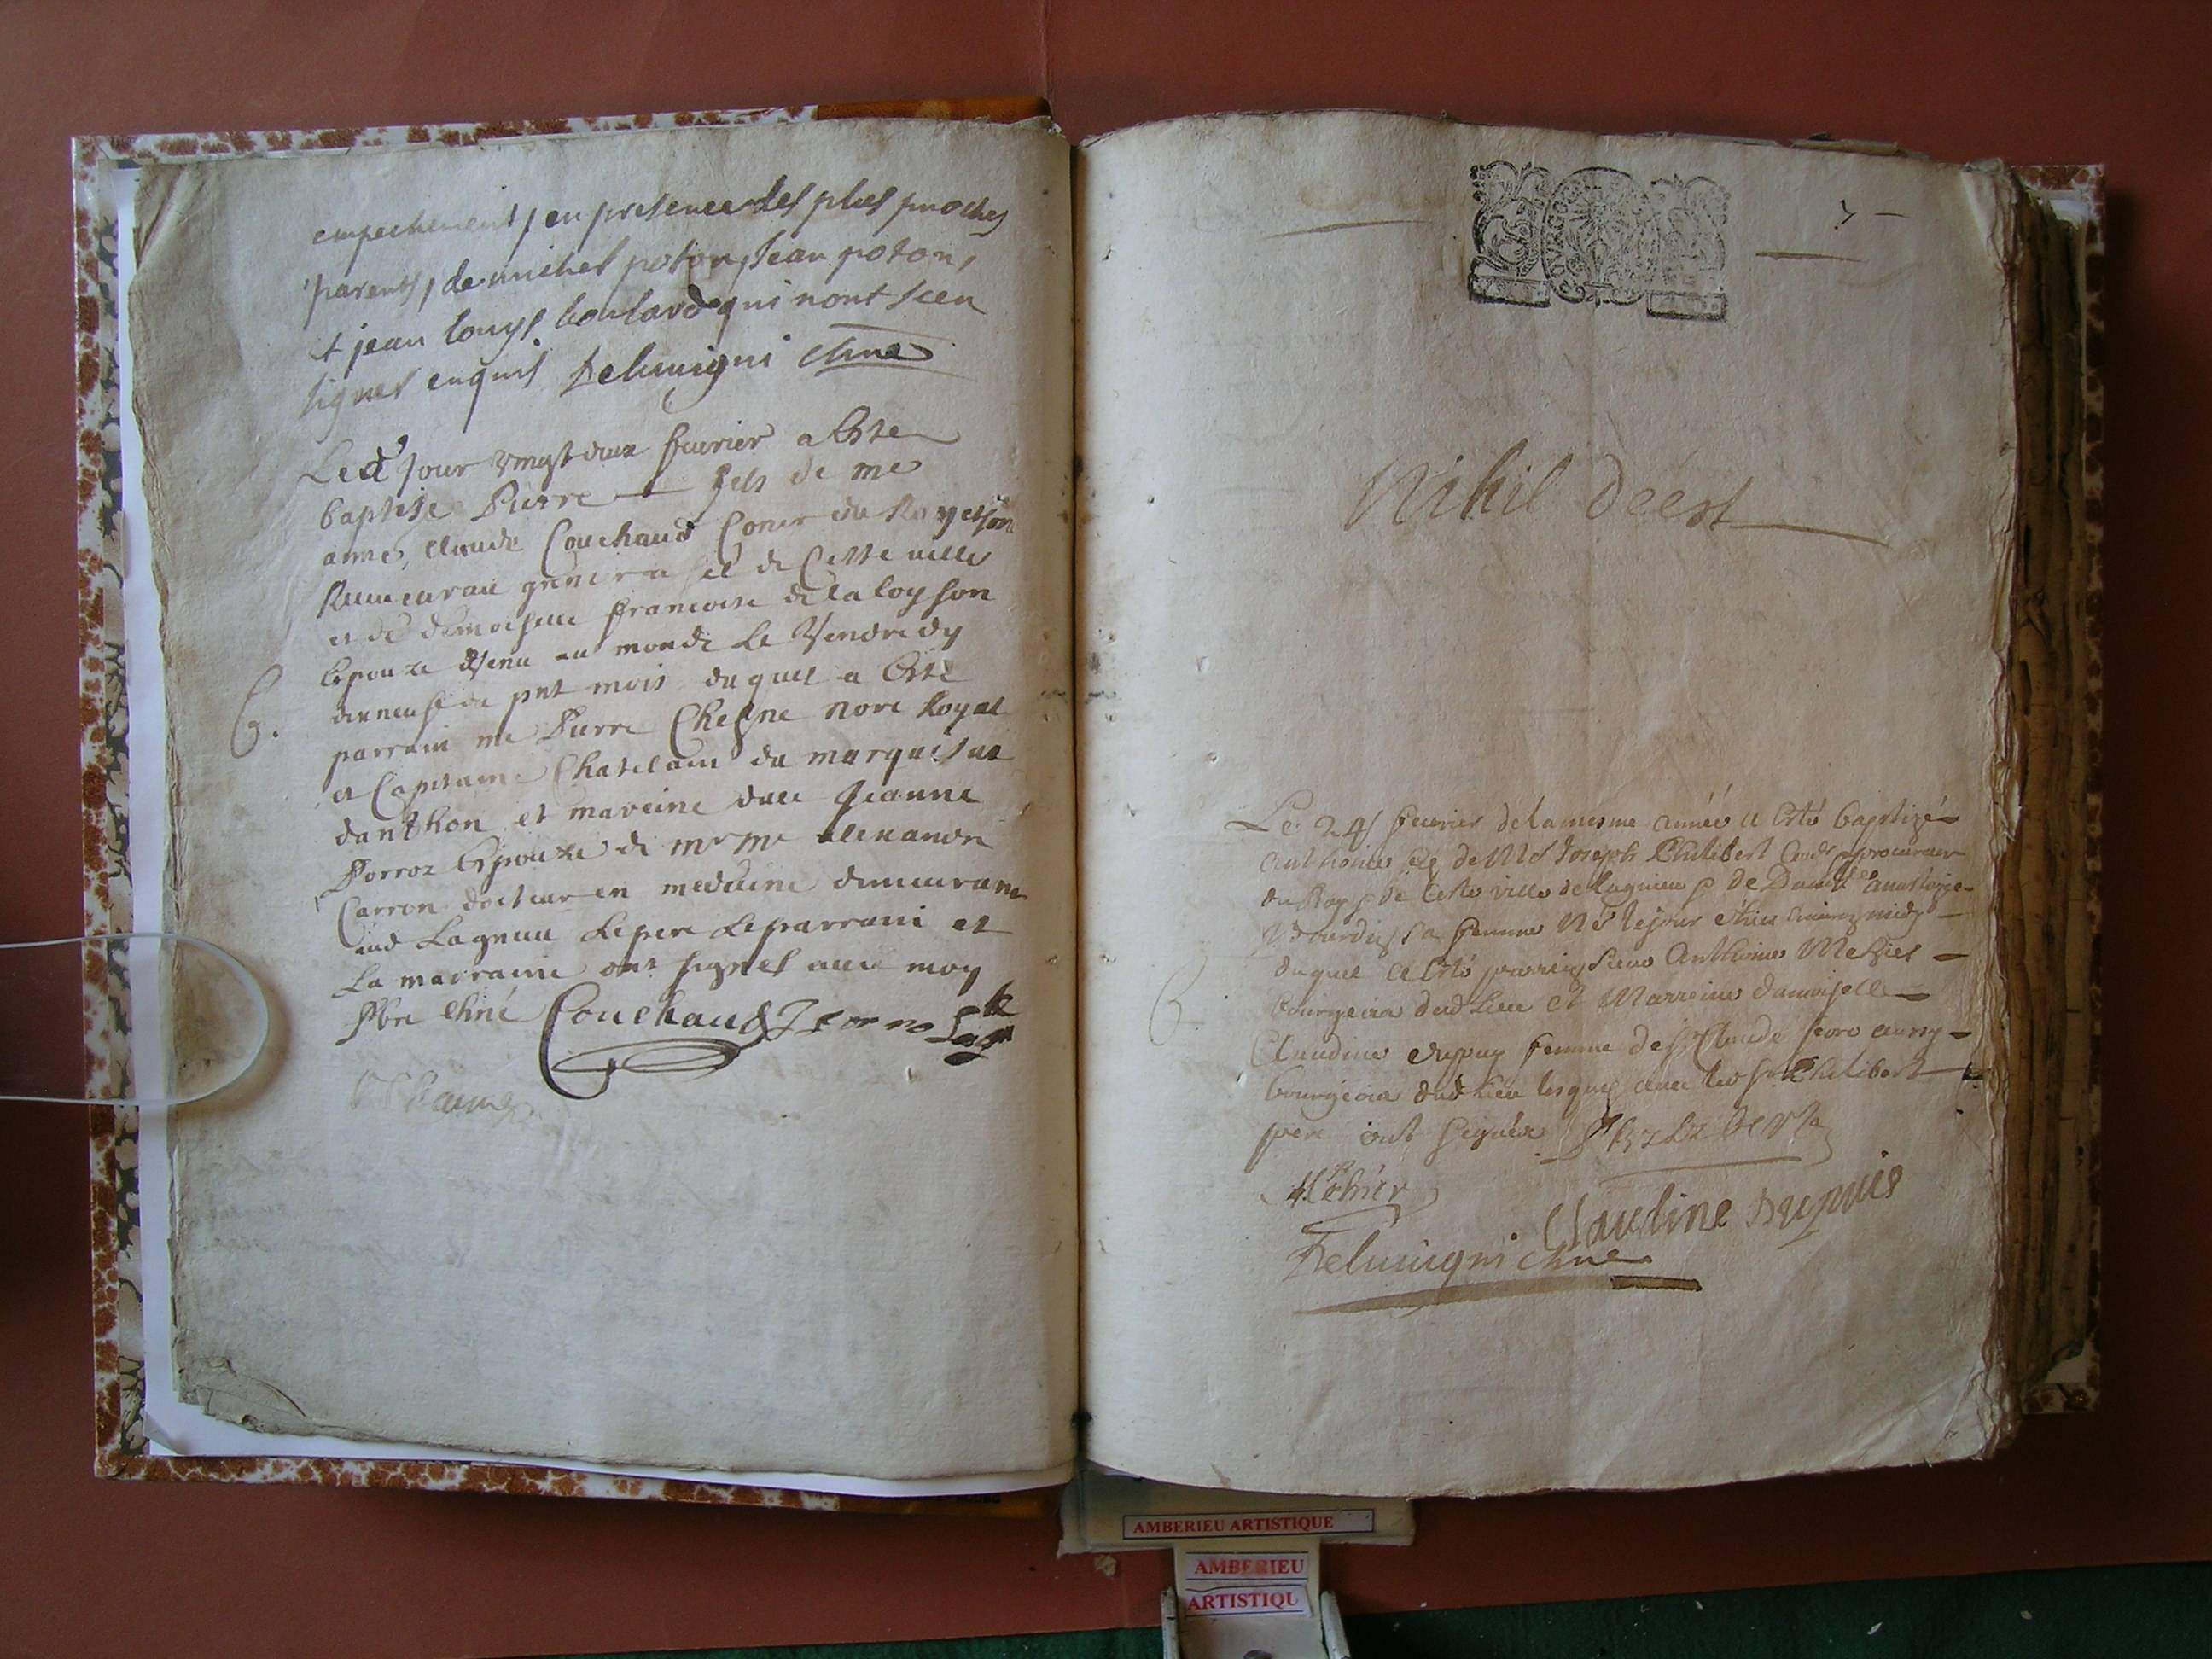 empechement, en presence des plus proches
parents, de michel poton, Jean poton,
et jean louys boulard qui nont sceu
signer enquis Delumigni
Led jour vingt deux fevrier a este
baptise Pierre fils de me
Claude Couchaud Coner du Roy et son
de Cette ville
et de demoiselle francoise de la loy son
Espouze venu au monde le Vendredy
dixneufe du pnt mois duquel a Esté
parrain me Pierre Chesne nore Royal
et Capitaine Chatelain du marquisat
danthon et mareine dlle Jeanne
Porroz Espouze de mr me alexandre
Carron docteur en medecine demeurant
aud Lagneu Le pere Le parrain et
La marraine ont signes avec moy
Couchaud
G.
7
Nihil déest
Le 24 fevrier de la mesme année a esté baptizé
Anthoine fils de Mr Joseph Philibert procureur
du Roy de Cette ville de Lagnieu de
sa femme né le jour
duquel a esté parrein sieur Anthoine
bourgeois dud lieu et Marreine damoiselle
Claudine Dupuy femme de sr Claude
bourgeois dud lieu lesquels avec led sr Philibert
pere ont signés
Claudine Dupuis
Delumigni
AMBERIEU ARTISTIQUE
AMBERIEU
ARTISTIQU